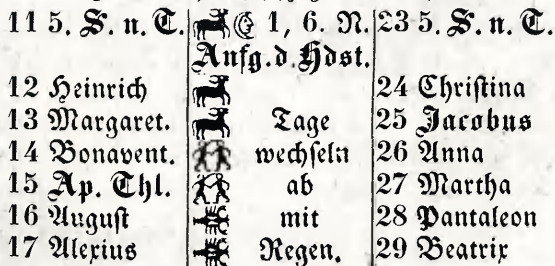 11 5. S. n. T. 1, 6. N. 23 5. S. n. T.
Anfg. d. Hdst.
12 Heinrich 24 Chriſtina
13 Margaret. Tage 25 Jacobus
14 Bonavent. wechſeln 26 Anna
15 Ap. Thl. ab 27 Martha
16 Auguſt mit 28 Pantaleon
17 Alexius Regen. 29 Beatrix